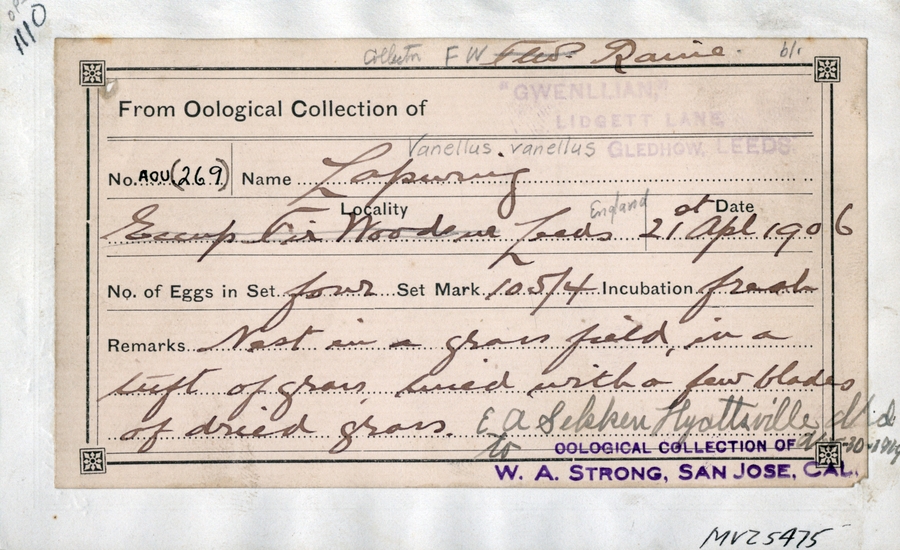 1110
Collector F W Raine. 6/.
"GWENLLIAN,"
From Oological Collection of
LIDGETT LANE
Vanellus vanellus GLEDHOW, LEEDS.
No. AOU (269) Name Lapwing
Locality England Date
Eccup Fir Wood near Leeds 21st Apl 1906
No. of Eggs in Set four Set Mark 105/4 Incubation fresh
Remarks Nest in a grass field, in a
tuft of grass, lined with a few blades
of dried grass. E A Hyattsville Md
to OOLOGICAL COLLECTION OF
W. A. STRONG, SAN JOSE, CAL.
MVZ5475